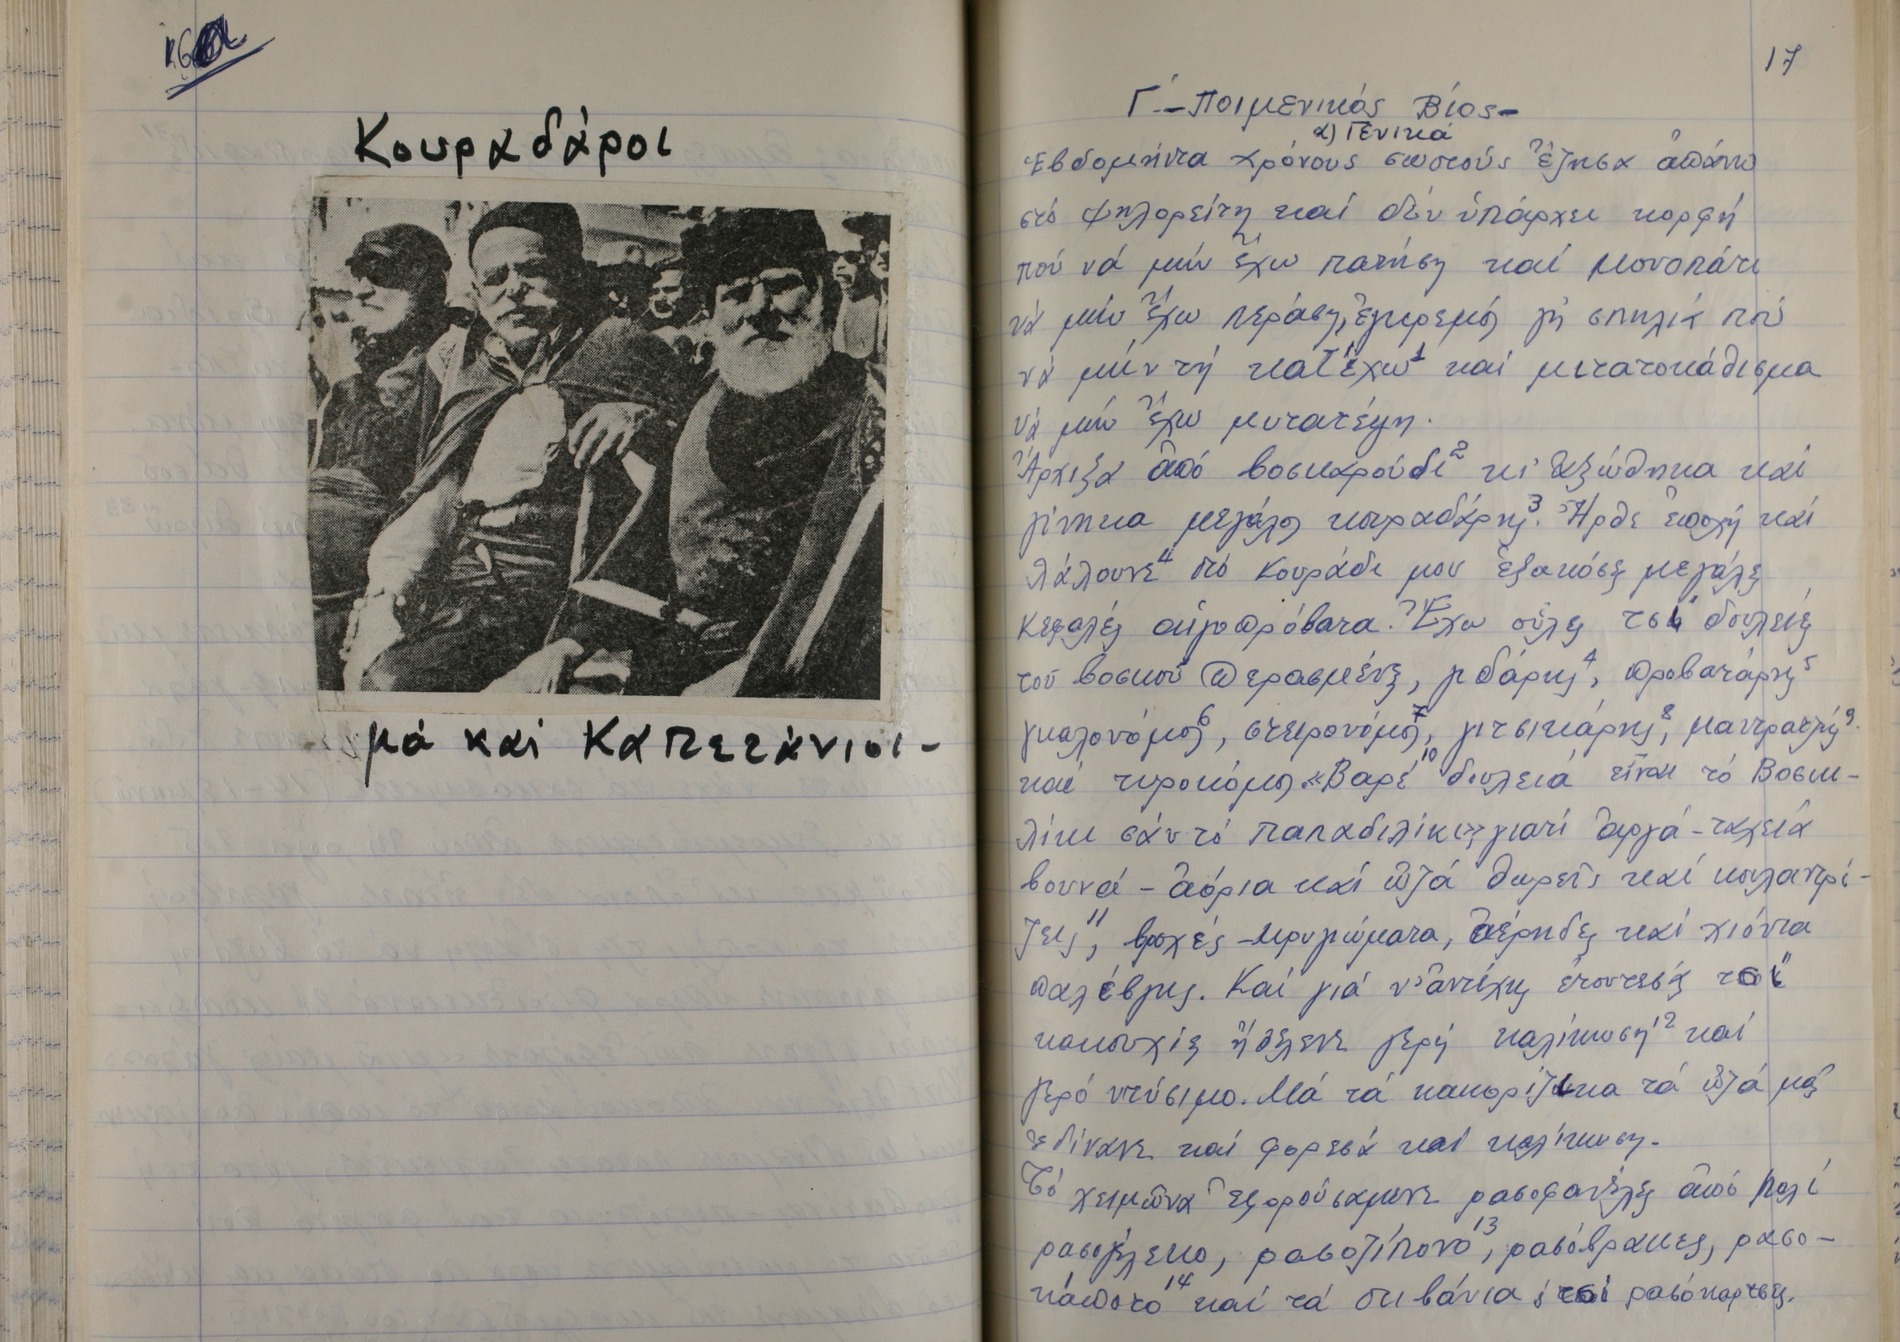 16α
Κουραδάροι
μά και Καπετάνιοι-
17
Γ΄.-Ποιμενικός Βίος-
α) Γενικά
Ἑβδομήντα χρόνους σωστούς ἔζησα ἀπάνω
στό Ψηλορείτη καί δέν ὑπάρχει κορφή
πού νά μήν ἔχω πατήση καί μονοπάτι
νά μήν ἔχω περάση, ἐγκρεμός γή σπηλιά πού
νά μήν τή κατέχω1 καί μιτατοκάθισμα
νά μήν ἔχω μιτατέψη.
Ἄρχιξα ἀπό βοσκαρούδι2 κι ἀξώθηκα καί
γίνηκα μεγάλος κουραδάρης3. Ἦρθε ἐποχή καί
λάλουνε4 στό κουράδι μου ἑξακόσες μεγάλες
κεφαλές αἰγοπρόβατα. Ἔχω οὕλες τσί δουλειές
τοῦ βοσκοῦ περασμένες, γιδάρης4, προβατάρης5
γκαλονόμος6, στειρονόμος7, γιτσικάρης8, μαντρατζής9
καί τυροκόμος. «Βαρέ10 δουλειά εἶναι τό Βοσκι-
λίκι σάν τό παπαδιλίκι» γιατί ἀργά-ταχειά
βουνά - ἀόρια καί ὠζά θωρεῖς καί κουλαντρί-
ζεις11, βροχές - κρυγιώματα, ἀέρηδες καί χιόνια
παλέβγεις. Καί γιά ν' ἀντέχης ἐτουτεσάς τσί
κακουχίες ἤθελενε γερή καλίκωση12 καί
γερό ντύσιμο. Μά τά κακορίζικα τά ὠζά μας
ἐδίνανε καί φορεσά καί καλίκωση.
Τό χειμῶνα ἐφορούσαμενε ρασοφανέλες ἀπό μαλί
ρασογέλεκο, ρασοζίπονο13, ρασόβρακες, ρασο-
κάποτο14 καί τά στιβάνια ἐτσί ρασόκαρτσες.